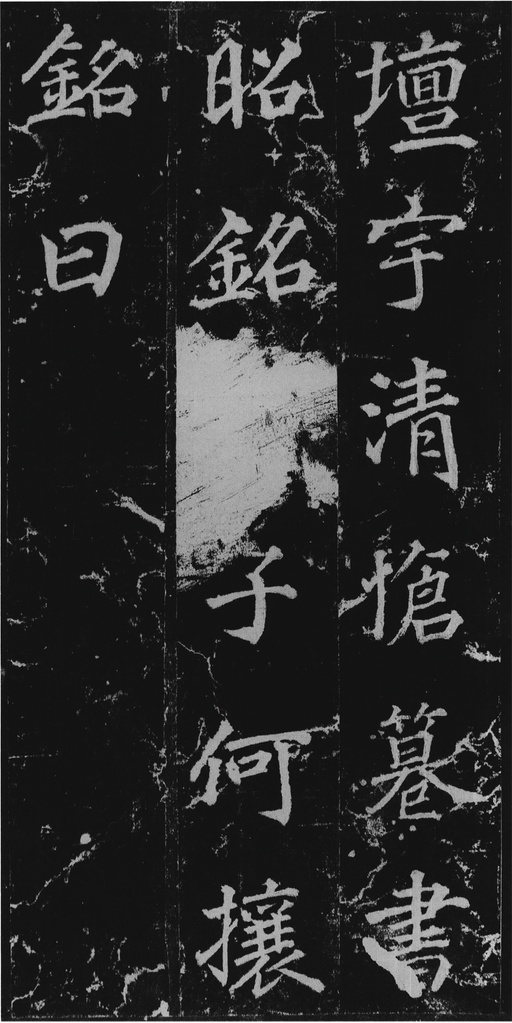 壇宇清愴書
昭銘子何攘
銘曰